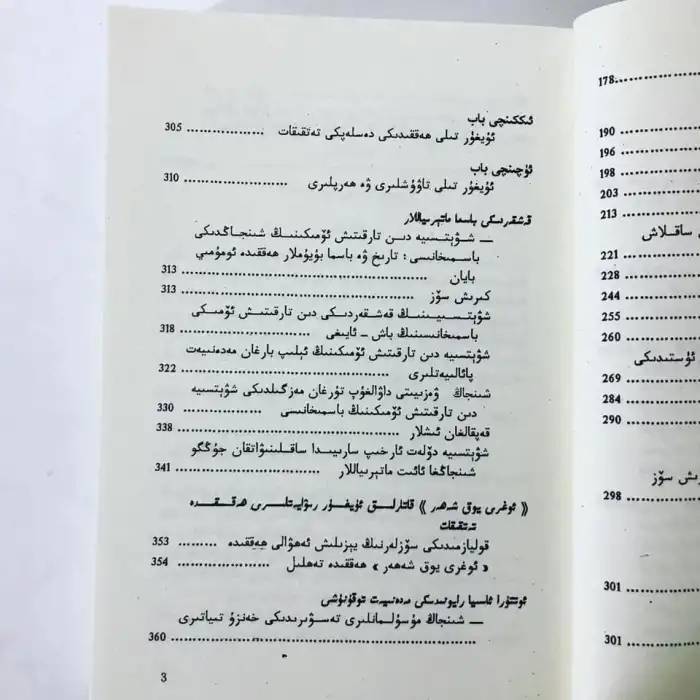 ئىككىنچى باب
ئۇيغۇر تىلى ھەققىدىكى دەسلەپكى تەتقىقات ................. 305
ئۈچىنچى باب
ئۇيغۇر تىلى تاۋۇشلىرى ۋە ھەرپلىرى ........................ 310
قەشقەردىكى باسما ماتېرىياللار
— شۋېتسىيە دىن تارقىتىش ئۆمىكىنىڭ شىنجاڭدىكى
باسمىخانىسى: تارىخ ۋە باسما بۇيۇملار ھەققىدە ئومۇمىي
بايان ............................................. 313
كىرىش سۆز ............................................. 313
شۋېتسىيىنىڭ قەشقەردىكى دىن تارقىتىش ئۆمىكى
باسمىخانىسىنىڭ باش – ئايىغى ............................ 318
شۋېتسىيە دىن تارقىتىش ئۆمىكىنىڭ ئېلىپ بارغان مەدەنىيەت
پائالىيەتلىرى ............................................. 322
شىنجاڭ ۋەزىيىتى داۋالغۇپ تۇرغان مەزگىلدىكى شۋېتسىيە
دىن تارقىتىش ئۆمىكىنىڭ باسمىخانىسى ..................... 330
قېپقالغان ئىشلار ............................................. 338
شۋېتسىيە دۆلەت ئارخىپ سارىيىدا ساقلىنىۋاتقان جۇڭگو
شىنجاڭغا ئائىت ماتېرىياللار ............................ 341
« ئوغرى يوق شەھەر » قاتارلىق ئۇيغۇر رىۋايەتلىرى ھەققىدە
تەتقىقات
قوليازمىدىكى سۆزلەرنىڭ يېزىلىش ئەھۋالى ھەققىدە ......... 353
« ئوغرى يوق شەھەر » ھەققىدە تەھلىل ..................... 354
ئوتتۇرا ئاسىيا رايونىدىكى مەدەنىيەت توقۇنۇشى
— شىنجاڭ مۇسۇلمانلىرى تەسۋىرىدىكى خەنزۇ تىياتىرى
............................................. 360
3
178
190
196
198
203
213
ساقلاش
221
228
244
255
260
ئۈستىدىكى
269
284
290
سۆز
298
301
301